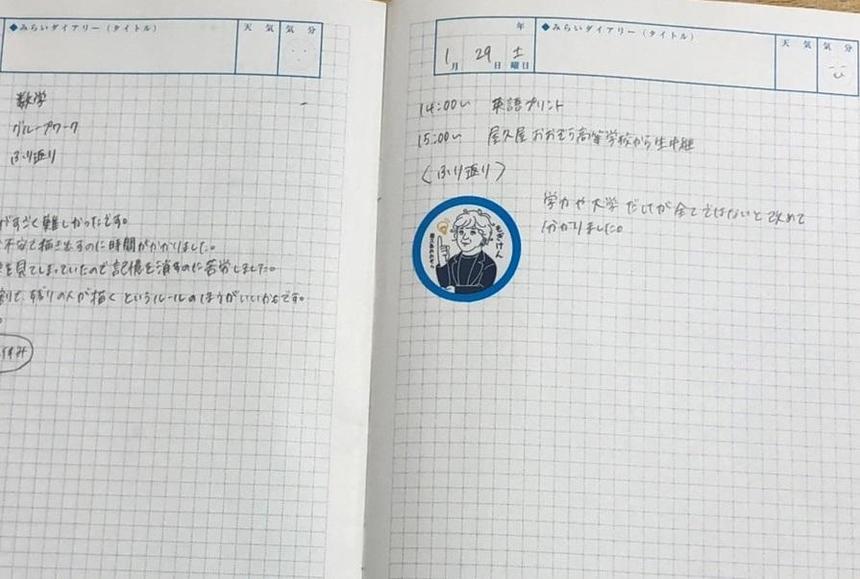 ◆みらいダイアリー(タイトル)
天気
気分
数学
グループワーク
ふり返り
がすごく難しかったです。
不安で描き出すのに時間がかかりました。
を見てしまっていたので記憶を消すのに苦労しました。
割で、残りの人が描くというルールのほうがいいかもです。
年
1月 29日 土曜日
◆みらいダイアリー(タイトル)
天気
気分
14:00~ 英語プリント
15:00~ 屋久屋おおぞら高等学校から生中継
〈ふり返り〉
もぎけん
学力や大学だけが全てではないと改めて
わかりました。